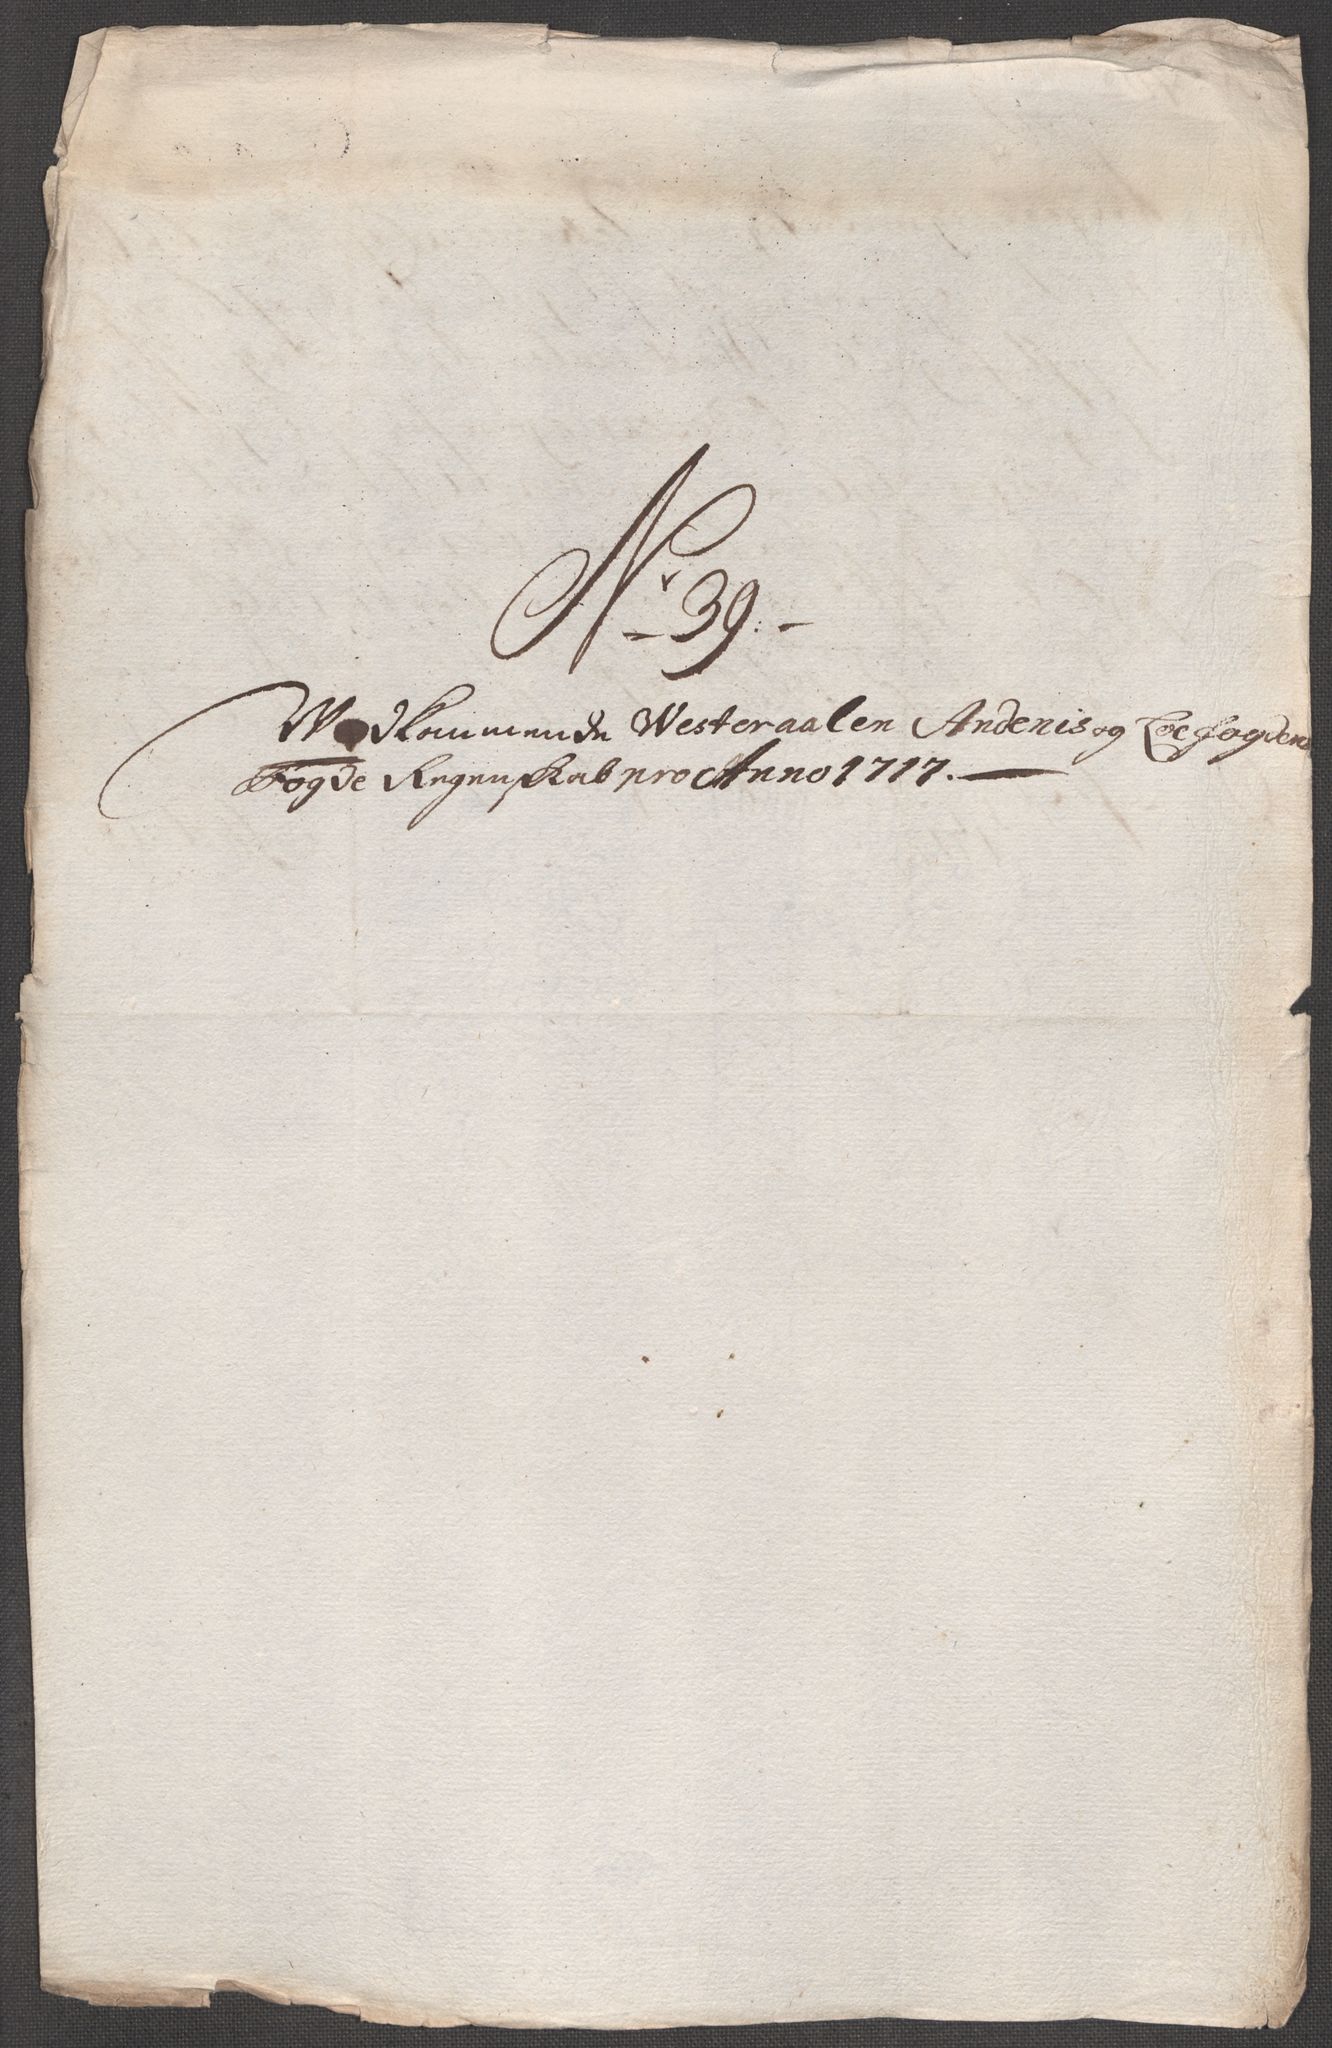 Nr 39.
Wedkommende Westeraalen Andenis og Lofogdens
Fogde Regenskab pro Anno 1717.